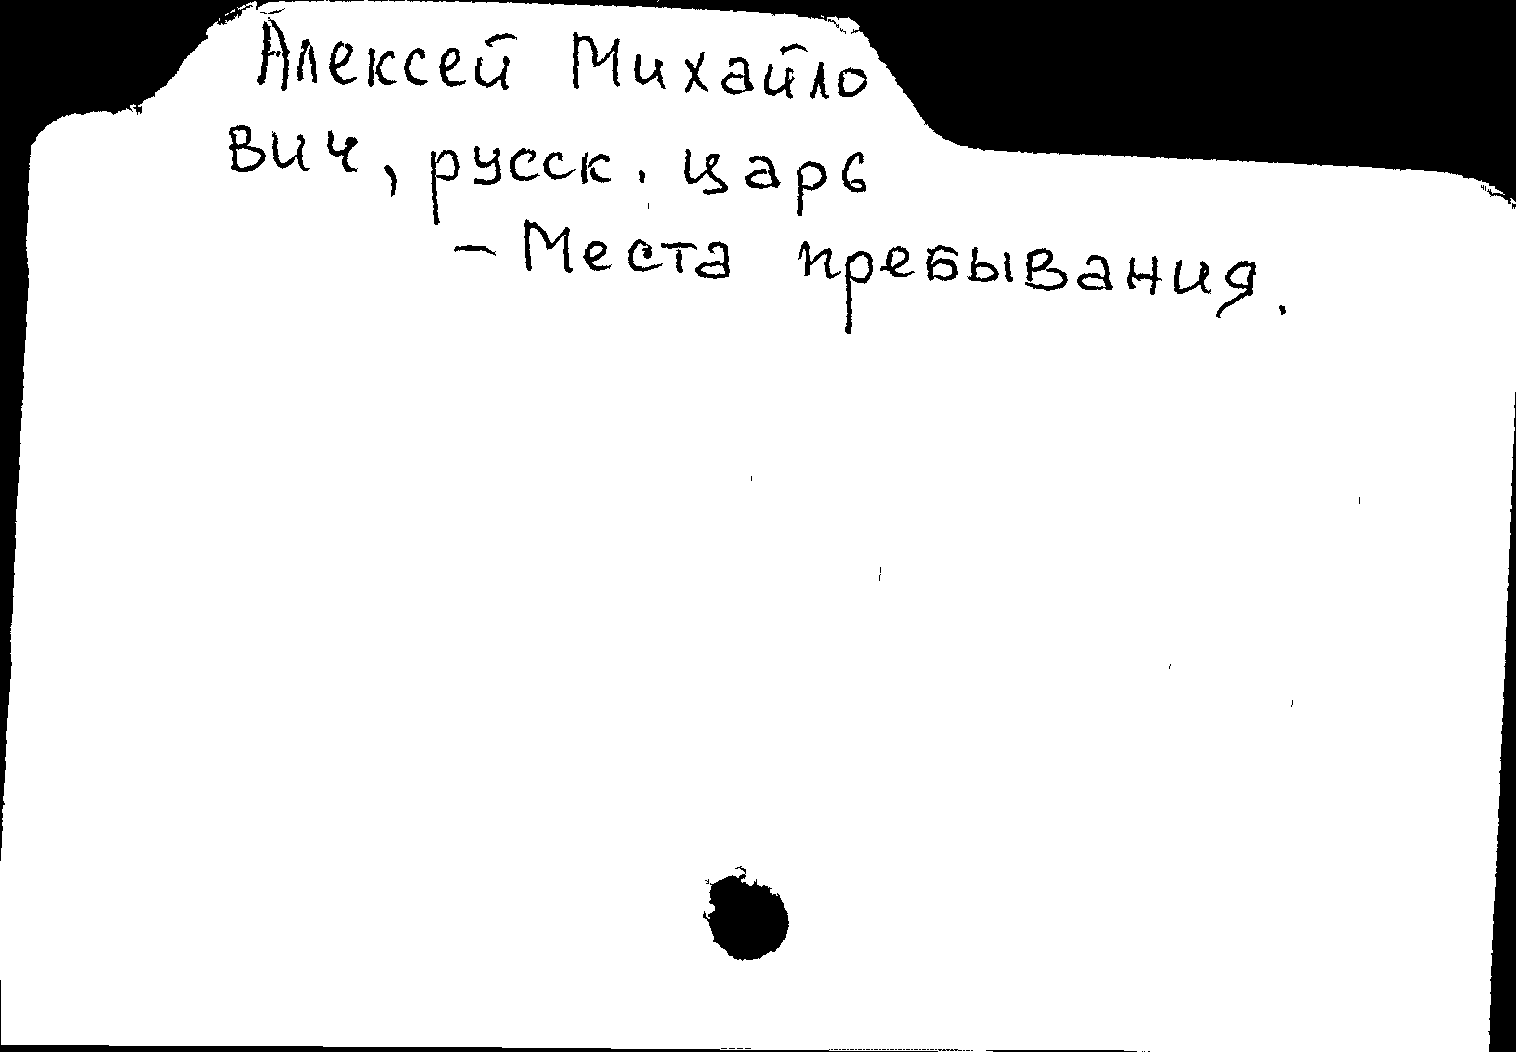 Алексей Михайло
вич, русск. царь
- Места пребывания.